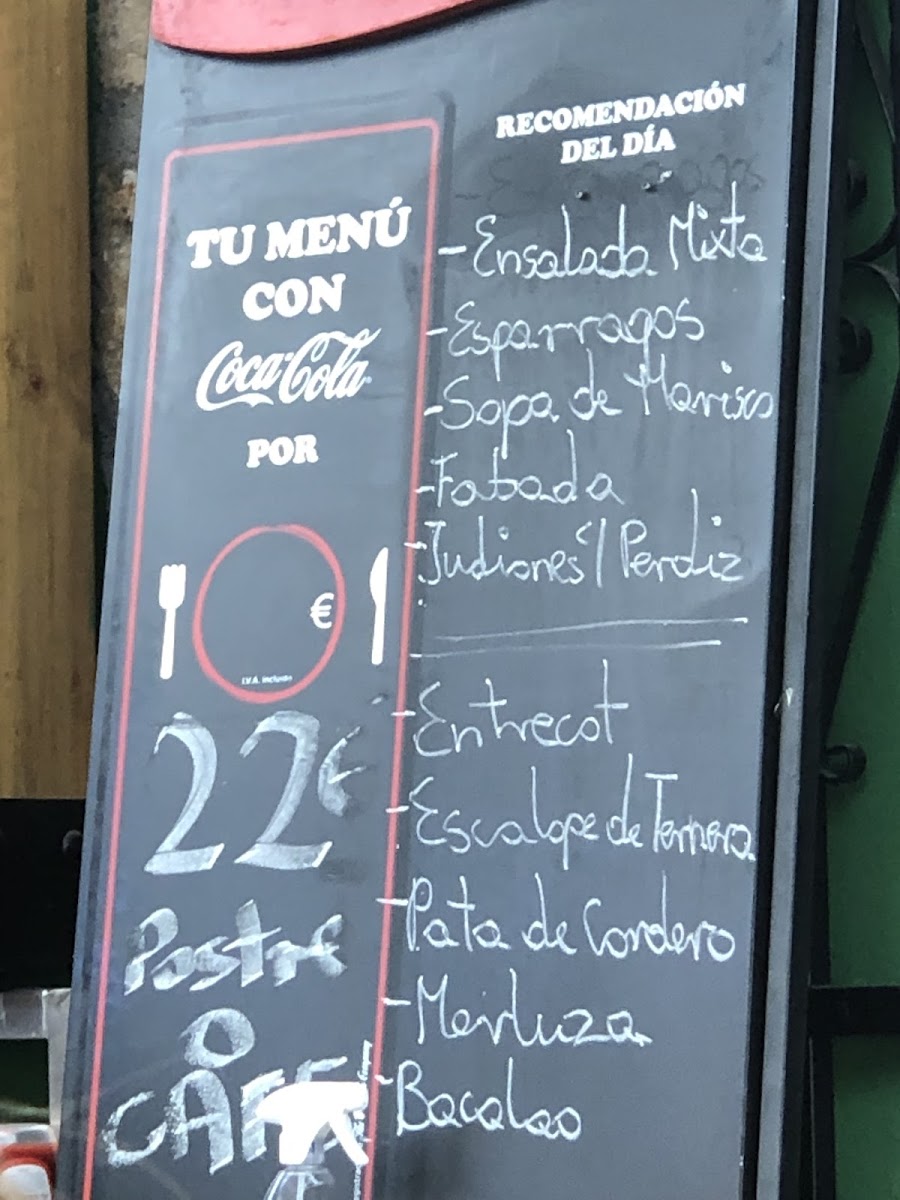 TU MENÚ
CON
Coca-Cola
POR
€
I.V.A. incluido
22€
Postre
O
CAFE
RECOMENDACIÓN
DEL DÍA
- Ensalada Mixta
- Esparragos
- Sopa de Marisco
- Fabada
- Judiones c/ Perdiz
- Entrecot
- Escalope de Ternera
- Pata de Cordero
- Merluza
- Bacalao